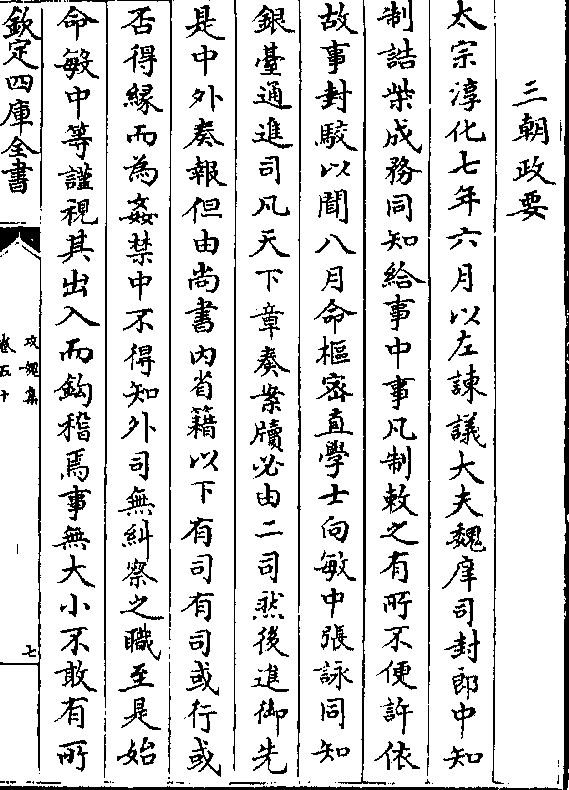 三朝政要
太宗淳化七年六月以左諫議大夫魏庠司封郎中知
制誥柴成務同知給事中事凡制敕之有所不便許依
故事封駮以聞八月命樞密直學士向敏中張詠同知
銀臺通進司凡天下章奏案牘必由二司然後進御先
是中外奏報但由尚書內省籍以下有司有司或行或
否得緣而為姦禁中不得知外司無糾察之職至是始
命敏中等謹視其出入而鈎稽焉事無大小不敢有所
欽定四庫全書
攻媿集
卷五十
七